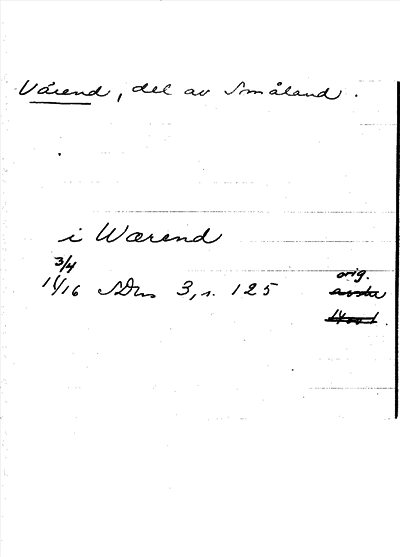 Värend, del av Småland.
i Wærend
3/4
1416 SDns 3, s. 125 orig.